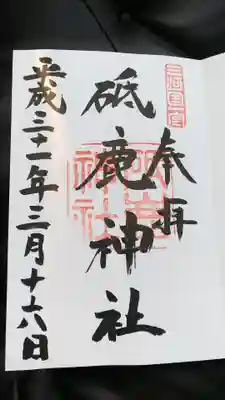 三河國一宮
奉拝
砥鹿神社
砥鹿神社
平成三十一年三月十六日